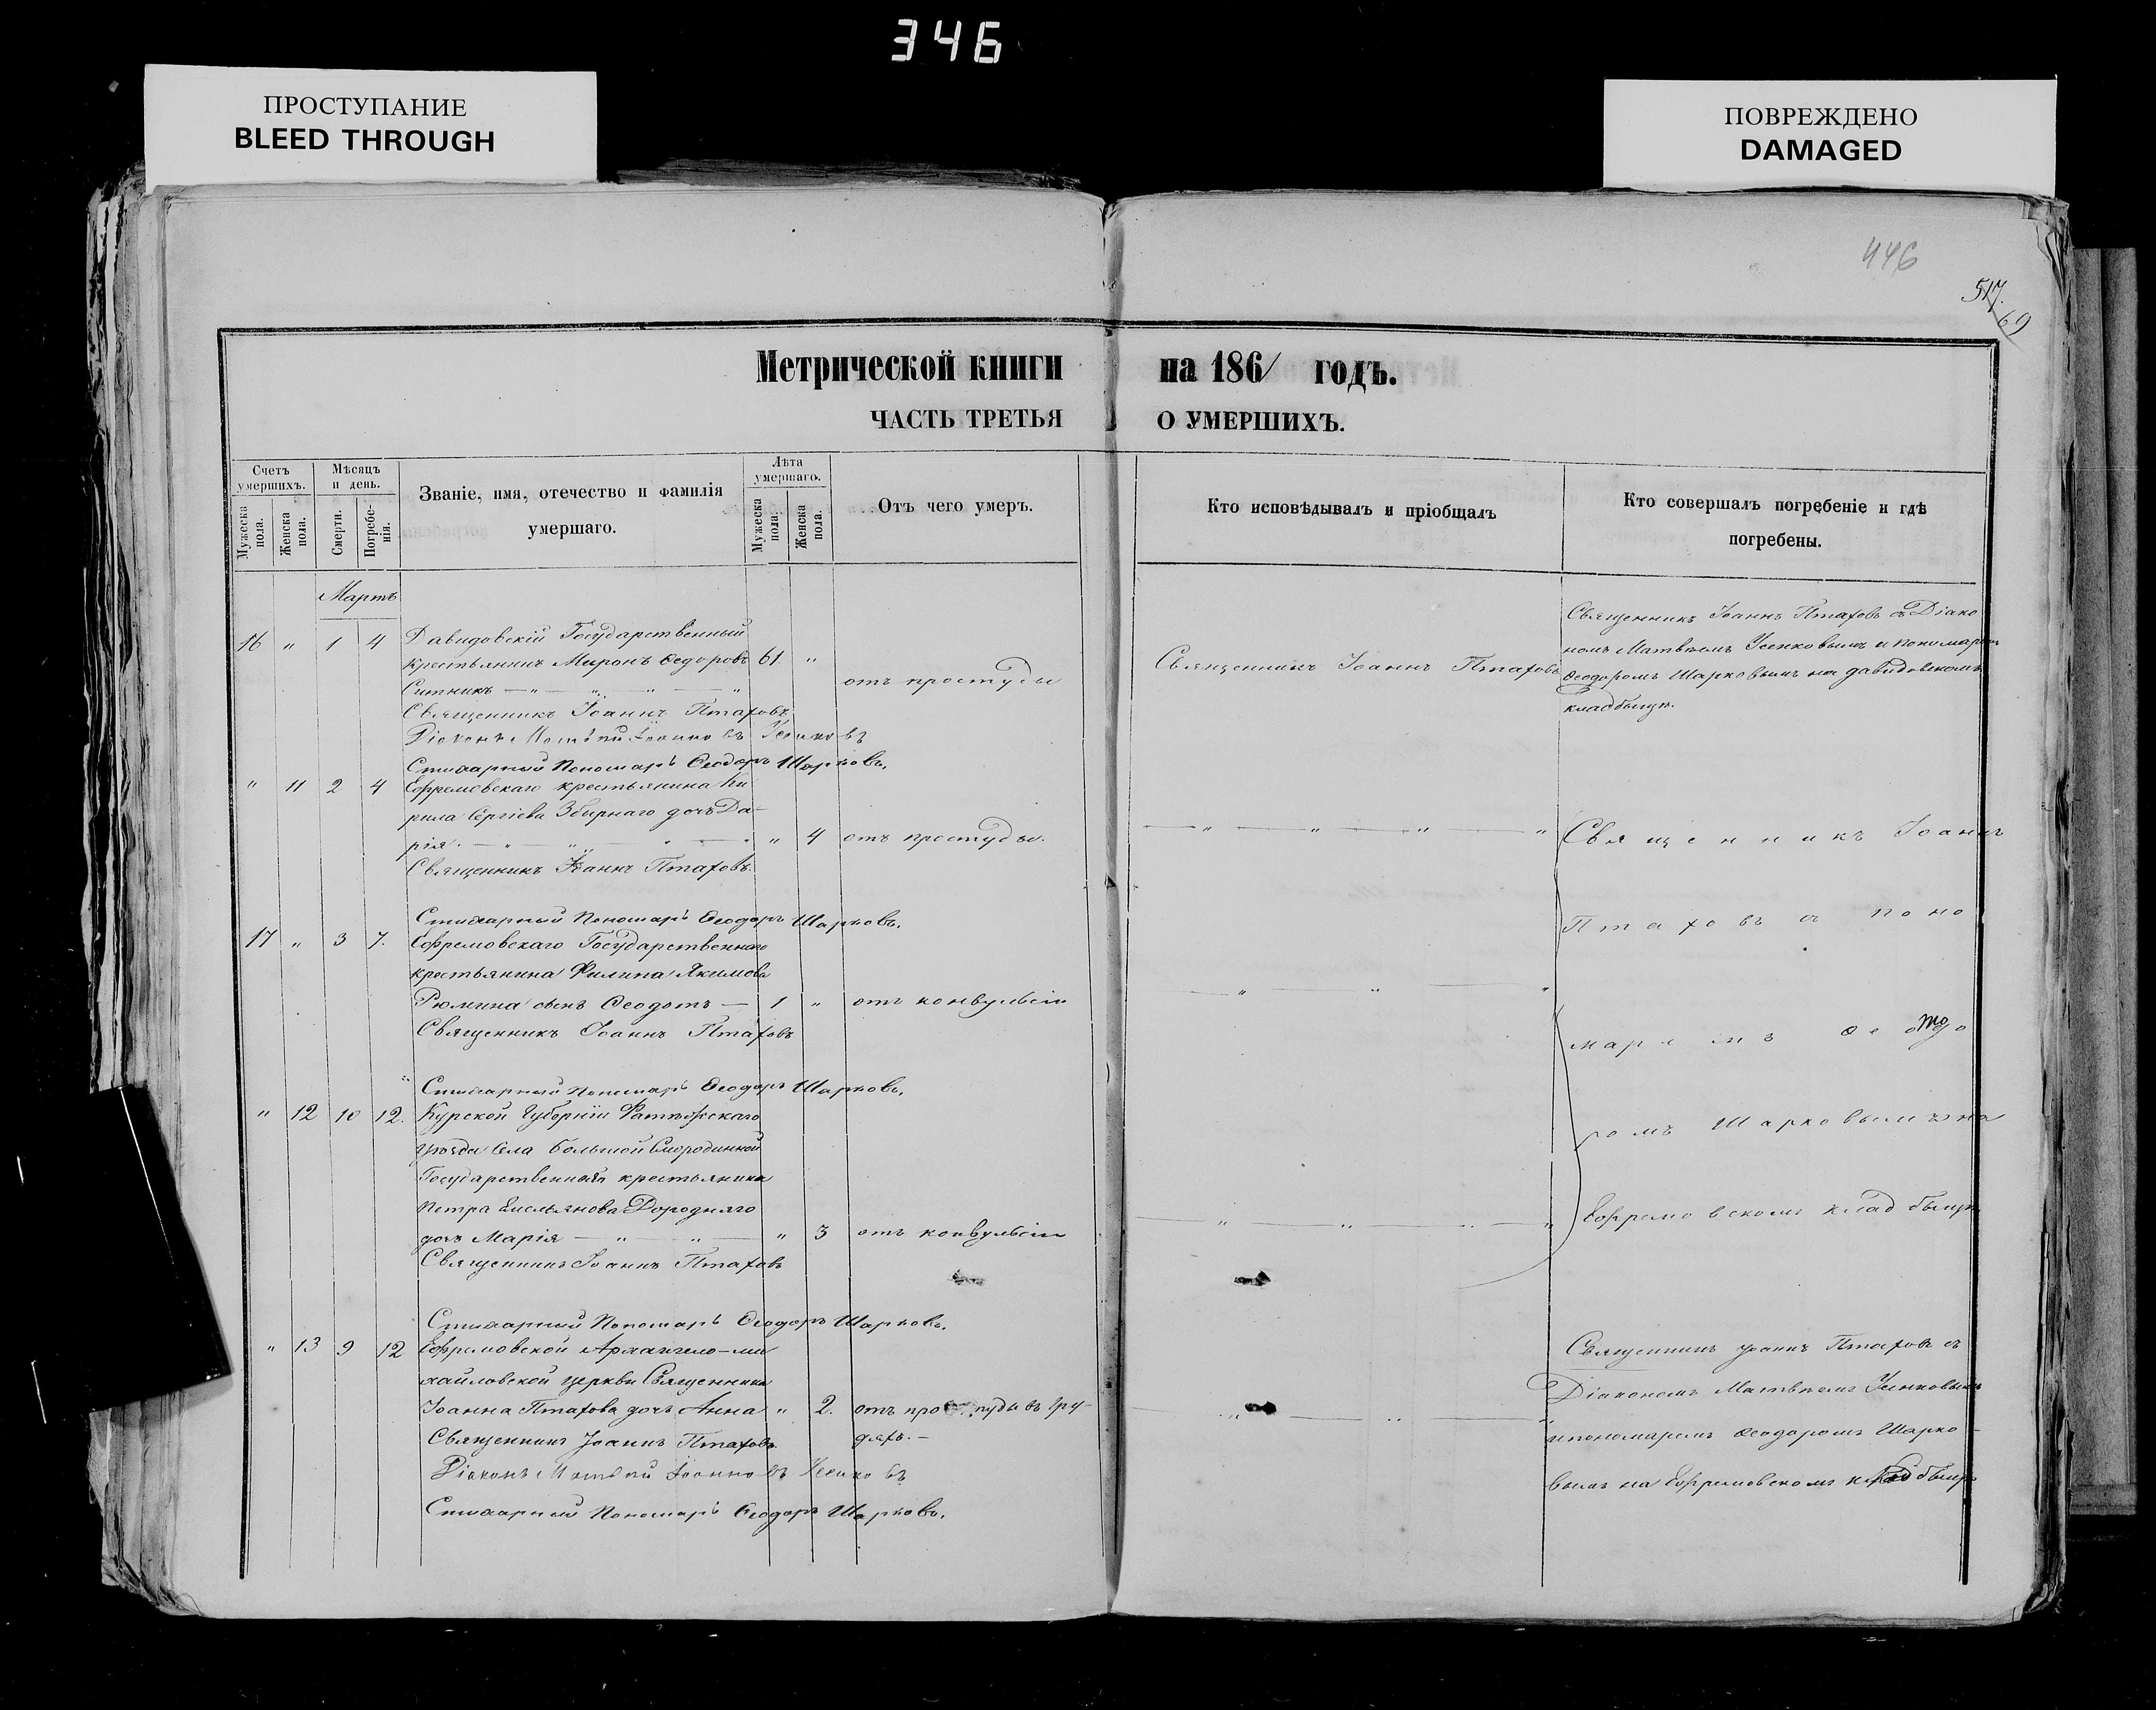 346
ПРОСТУПАНИЕ
BLEED THROUGH
ПОВРЕЖДЕНО
DAMAGED
446
517.
69
Метрической книги на 1861 годъ.
ЧАСТЬ ТРЕТЬЯ О УМЕРШИХЪ.
Счетъ умершихъ.
Мужеска пола.
Женска пола.
Мѣсяцъ и день.
Смерти.
Погребенія.
Званіе, имя, отечество и фамилія умершаго.
Лѣта умершаго.
Мужеска пола.
Женска пола.
Отъ чего умеръ.
Кто исповѣдывалъ и пріобщалъ
Кто совершалъ погребеніе и гдѣ погребены.
Мартъ
16 " 1 4 Давидовскій Государственный
крестьянинъ Миронъ Ѳедоровъ 61 "
Ситникъ — " — " — " — " отъ простуды
Священникъ Іоаннъ Птаховъ
Священникъ Іоаннъ Птаховъ съ Діако
номъ Матвѣемъ Усенковымъ и пономарем
Ѳеодоромъ Шарковымъ на давидовскомъ
кладбищѣ.
Священникъ Іоаннъ Птаховъ.
Діаконъ Матвѣй Усенковъ
Стихарный Пономарь Ѳеодоръ Шарковъ.
" 11 2 4 Ефремовскаго крестьянина Ки
рила Сергіева Збирнаго дочь Да-
рія. — " — " — " " 4 отъ простуды.
Священникъ Іоаннъ Птаховъ.
Стихарный Пономарь Ѳеодоръ Шарковъ.
17 " 3 7. Ефремовскаго Государственнаго
крестьянина Филипа Якимова
Рюмина сынъ Ѳеодотъ — 1 " отъ конвульсіи
Священникъ Іоаннъ Птаховъ
Стихарный Пономарь Ѳеодоръ Шарковъ.
" 12 10 12. Курской Губерніи Фатѣжскаго
уѣзда Села Большой Смородинной
Государственнаго крестьянина
Петра Емельянова Дородняго
дочь Марія — " — " — " 3 отъ конвульсіи
Священникъ Іоаннъ Птаховъ
Стихарный Пономарь Ѳеодоръ Шарковъ.
Священникъ Іоаннъ
Птаховъ съ поно
маремъ Ѳеодо
ромъ Шарковымъ на
Ефремовскомъ кладбищѣ
" 13 9 12 Ефремовской Архангело-ми
хайловской церкви Священника
Іоанна Птахова дочь Анна " 2. отъ простуды въ гру-
дяхъ. —
Священникъ Іоаннъ Птаховъ.
Діаконъ Матвѣй Усенковъ
Стихарный Пономарь Ѳеодоръ Шарковъ.
Священникъ Іоаннъ Птаховъ съ
Діакономъ Матвѣемъ Усенковымъ
и пономаремъ Ѳеодоромъ Шарко-
вымъ на Ефремовскомъ кладбищѣ